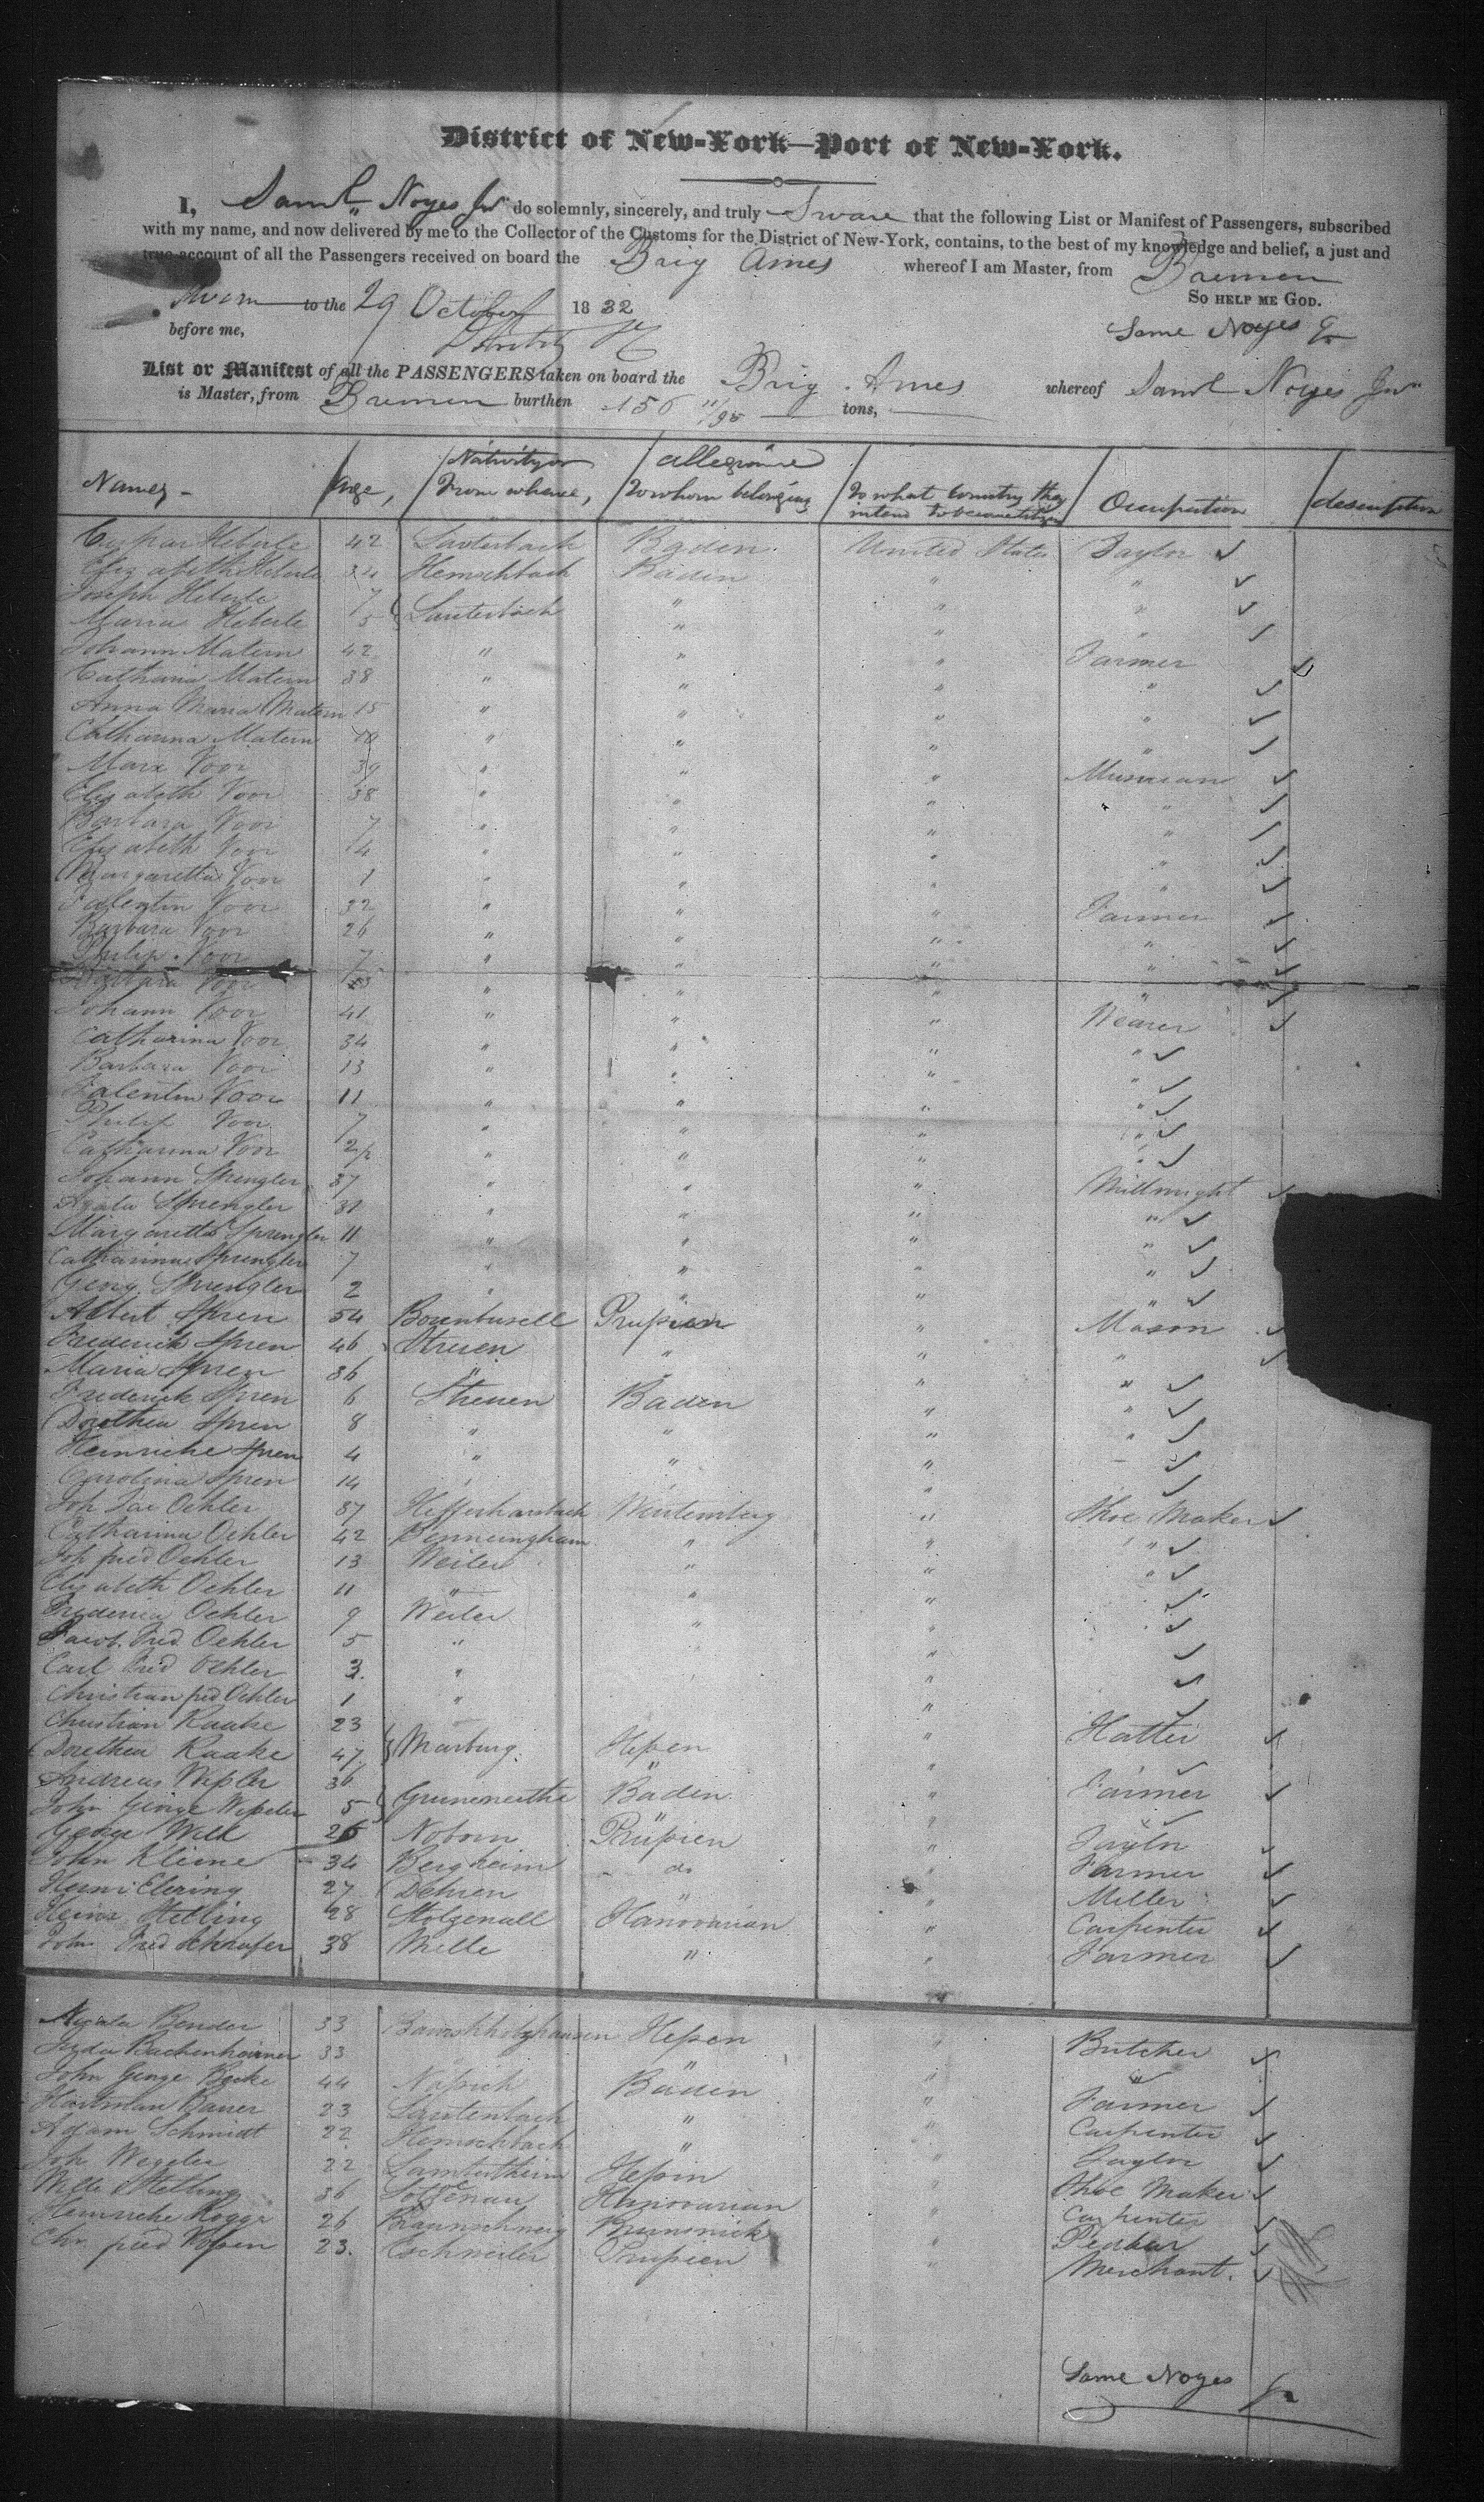 District of New-York—Port of New-York.
I, Saml. Noyes Jnr do solemnly, sincerely, and truly Sware that the following List or Manifest of Passengers, subscribed
with my name, and now delivered by me to the Collector of the Customs for the District of New-York, contains, to the best of my knowledge and belief, a just and
true account of all the Passengers received on board the Brig Ames whereof I am Master, from Bremen
Sworn to the 29 October 1832 So help me God.
before me, Saml Noyes Jr
List or Manifest of all the PASSENGERS taken on board the Brig Ames whereof Saml Noyes Jnr
is Master, from Bremen burthen 156 11/95 tons,
Names Age, Nativity or From whence, allegiance To whom belonging To what Country they intend to become Occupation description
Caspar Heberle 42 Lauterbach Baden United States Taylor
Elizabeth Heberle 34 Hemschbach Baden " "
Joseph Heberle 7 Lauterbach " " "
Maria Heberle 5 " " "
Johann Matern 42 " " " Farmer
Catharina Matern 38 " " " "
Anna Maria Matern 15 " " " "
Catharina Matern 10 " " " "
Marx Voor 39 " " " Musician
Elizabeth Voor 38 " " " "
Barbara Voor 7 " " " "
Elizabeth Voor 4 " " " "
Margaretta Voor 1 " " " "
Valentin Voor 32 " " " Farmer
Barbara Voor 26 " " " "
Philip Voor 7 " " " "
Barbara Voor " " " "
Johann Voor 41 " " " Weaver
Catharina Voor 34 " " " "
Barbara Voor 13 " " " "
Valentin Voor 11 " " " "
Philip Voor 7 " " " "
Catharina Voor " " " "
Johann Sprengler 37 " " " Millwright
Sprengler 31 " " " "
Margaretta Sprengler 11 " " " "
Catharina Sprengler 7 " " " "
Georg Sprengler 2 " " " "
Albert Spren 54 Prussien " Mason
Frederick Spren 46 " " "
Maria Spren 36 " " " "
Frederick Spren 6 Baden " "
Dorethea Spren 8 " " " "
Heinriche Spren 4 " " "
Carolina Spren 14 "
Joh Jac Oehler 37 Wurtemberg " Shoe Maker
Catharina Oehler 42 Benneingham " " "
Joh fried Oehler 13 Weiler " " "
Elizabeth Oehler 11 " " "
Frederica Oehler 9 Weiler " "
Jacob Fried Oehler 5 " "
Carl Fried Oehler 3 " "
Christian fried Oehler 1 " "
Christian Raake 23 Marburg Hessen " Hatter
Dorethea Raake 47 " "
Andreas Wessler 36 Baden " Farmer
John George Wessler 5 " "
George Well 26 Noborn Prüssien " Taylor
John Kleine 34 Bergheim do " Farmer
Henri Elering 27 Dehren " " Miller
Heinr Stelling 28 Stolzenall Hanovarian " Carpenter
John Fried Schnafer 38 Melle " " Farmer
Bender 33 Hessen " Butcher
Bachenheimer 33 " "
John George Becke 44 Baden " Farmer
Hartman Bauer 23 Lautenbach " " Carpenter
Adam Schmidt 22 Hemschbach " " Taylor
Joh Wegeler 22 Hessin " Shoe Maker
Stelling 36 Hanovarian " Carpenter
Heinriche Rogge 26 Braunschweig Brunswick "
Chr fried 23 Eschweiler Prussien " Merchant.
Saml Noyes Jr